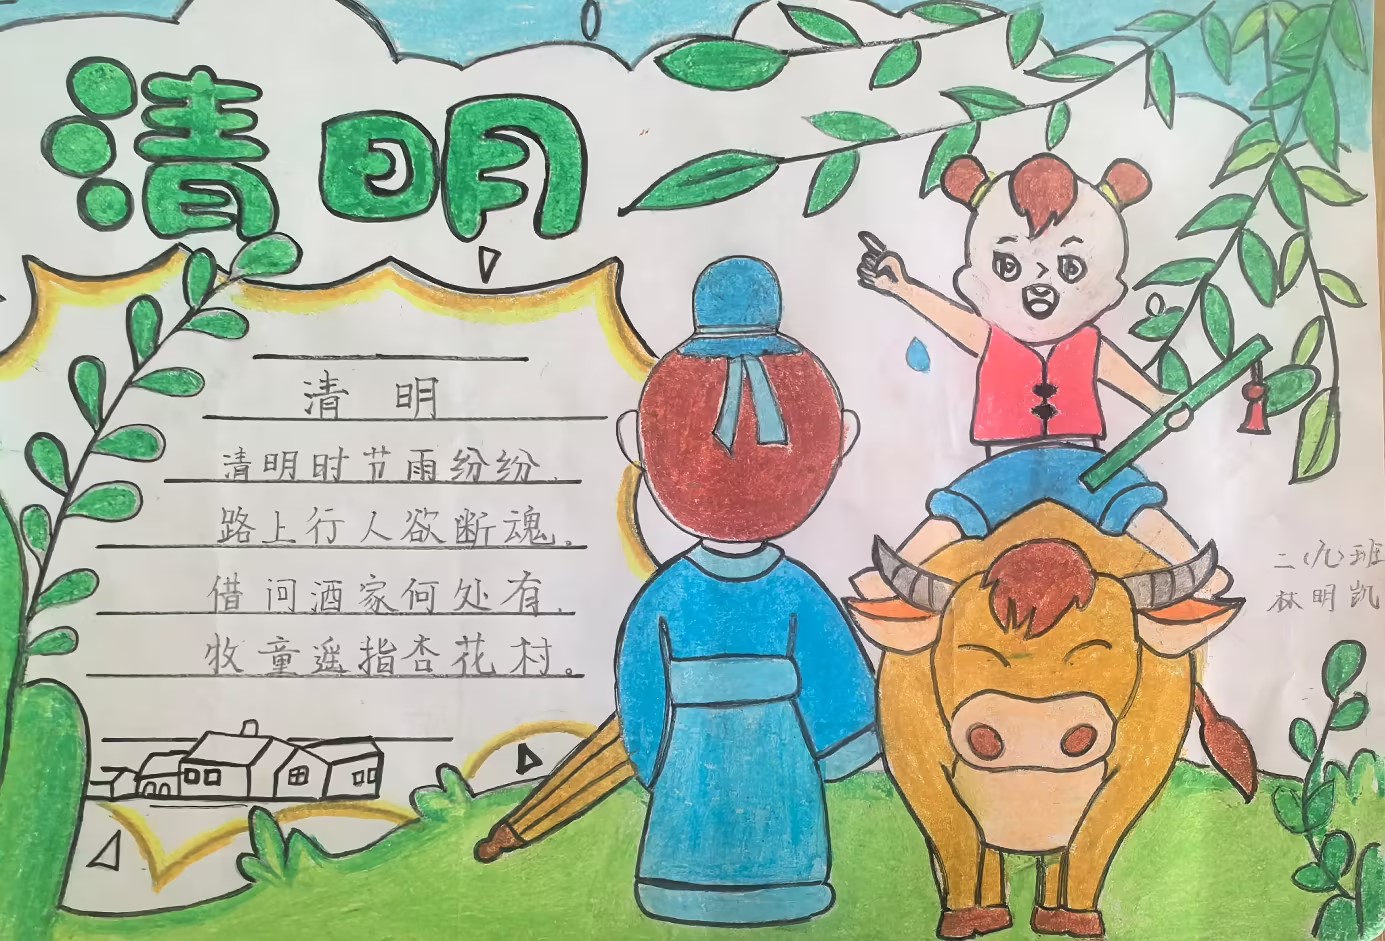 清明
清 明
清明时节雨纷纷.
路上行人欲断魂。
借问酒家何处有.
牧童遥指杏花村。
二(九)班
林明凯